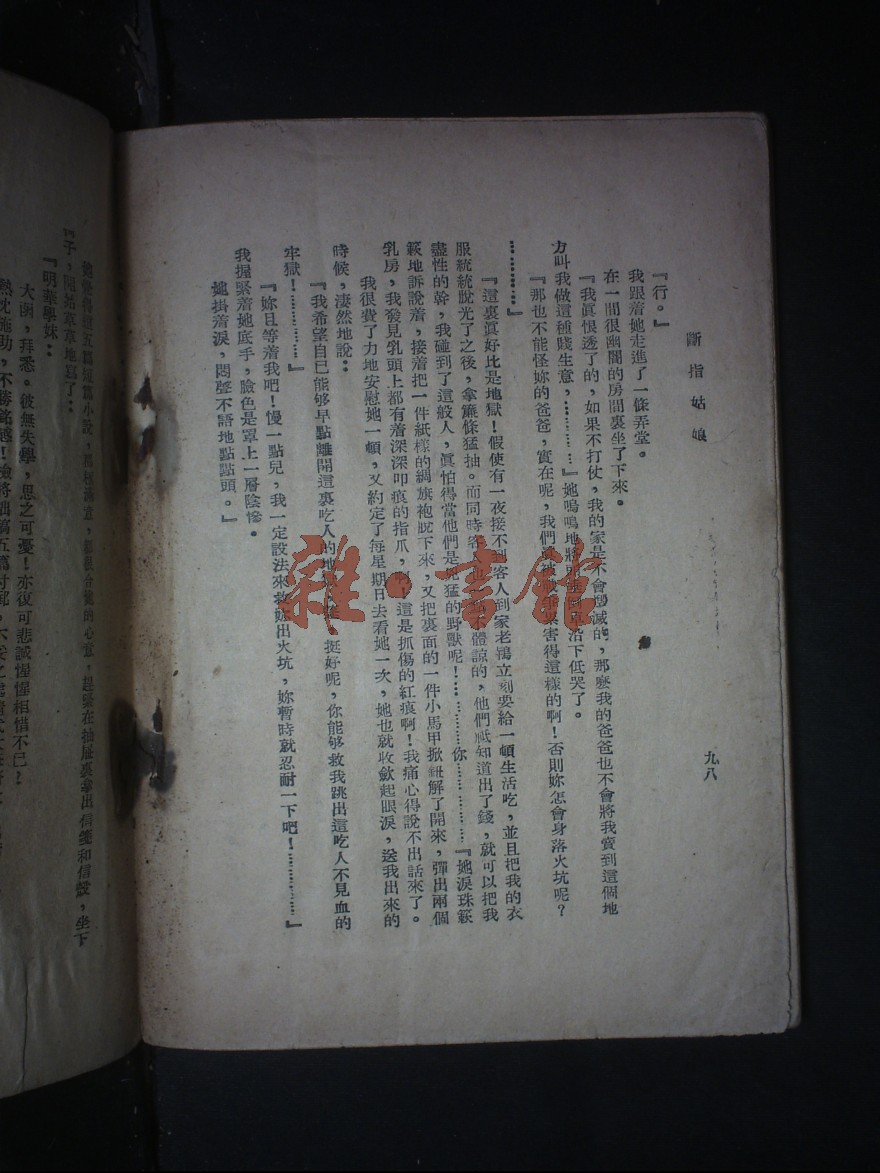 斷指姑娘
九八
『行。』
我跟着她走進了一條弄堂。
在一間很幽闇的房間裏坐了下來。
『我眞恨透了的，如果不打仗，我的家是不會燬滅的，那麽我的爸爸也不會將我賣到這個地
方叫我做這種賤生意，…………』她嗚嗚地將 低哭了。
『那也不能怪妳的爸爸，實在呢，我們 害得這樣的啊！否則妳怎會身落火坑呢？
…………』
『這裏眞好比是地獄！假使有一夜接不到客人到家老鴇立刻要給一頓生活吃，並且把我的衣
服統統脫光了之後，拿簾條猛抽。而同時客 也 不體諒的，他們祗知道出了錢，就可以把我
盡性的幹，我碰到了這般人，眞怕得當他們是兇猛的野獸呢！…………你…………』她淚珠簌
簌地訴說着，接着把一件紙樣的綢旗袍脫下來，又把裏面的一件小馬甲掀鈕解了開來，彈出兩個
乳房，我發見乳頭上都有着深深叩痕的指爪，啊！這是抓傷的紅痕啊！我痛心得說不出話來了。
我很費了力地安慰她一頓，又約定了每星期日去看她一次，她也就收歛起眼淚，送我出來的
時候，淒然地說：
『我希望自已能够早點離開這裏吃人的地 挺好呢，你能够救我跳出這吃人不見血的
牢獄！…………』
『妳且等着我吧！慢一點兒，我一定設法來救妳出火坑，妳暫時就忍耐一下吧！…………』
我握緊着她底手，臉色是罩上一層陰慘。
她掛着淚，悶聲不語地點點頭。』
在抽屜裏拿出信箋和信封，坐下
子，開始草草地寫了：
『明華學妹：
大函，拜悉。彼無失學，思之可憂！亦復可悲誠惺惺相惜不已！
雜·書館